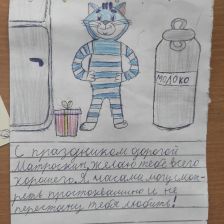 МОЛОКО
С праздником дорогой
Матроскин, желаю тебе всего
хорошего. Я масама могу смот-
реть простоквашино и не
перестану тебя любить!